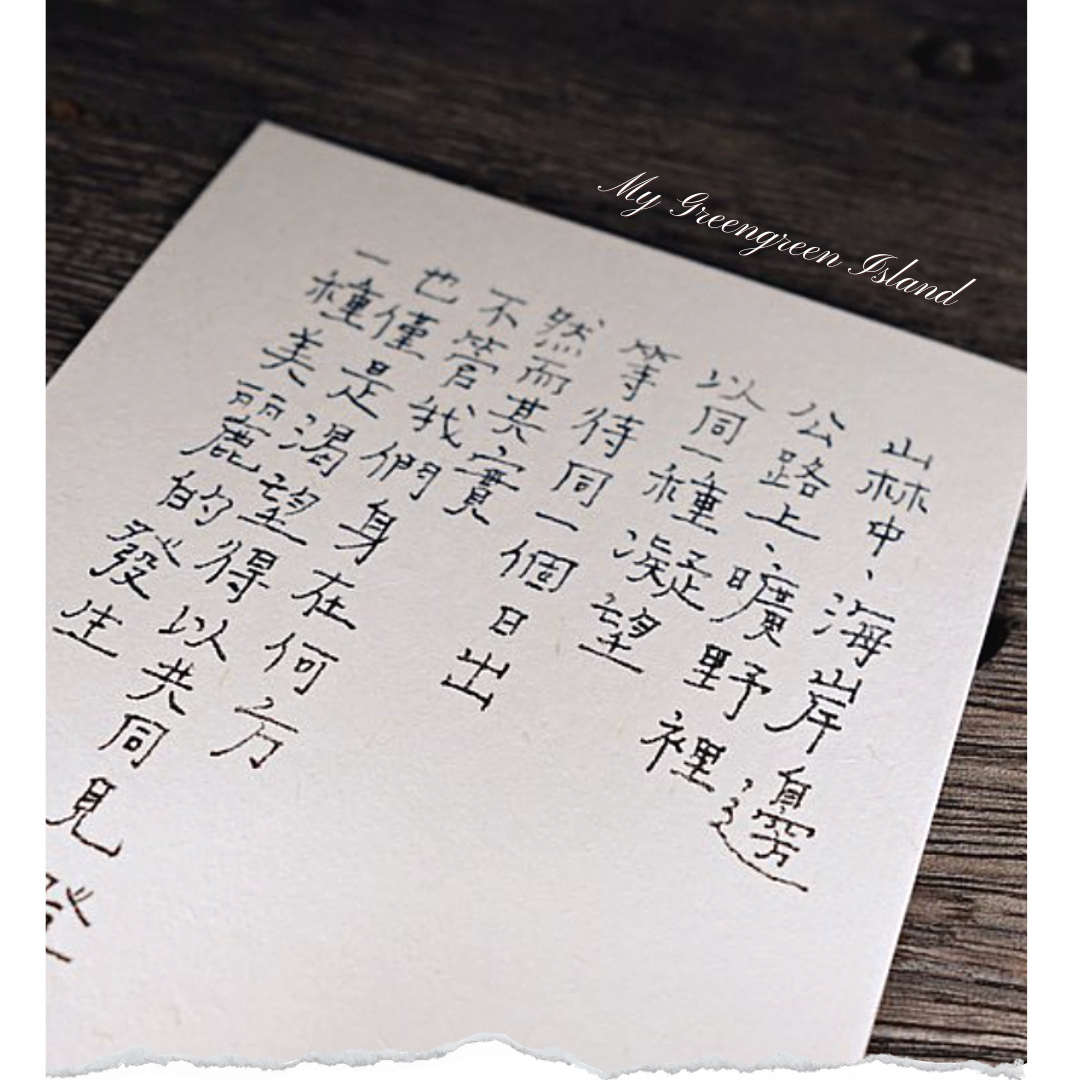 My Greengreen Island
山林中、海岸邊
公路上、曠野裡
以同一種凝望
等待同一個日出
然而其實
不管我們身在何方
也僅是渴望得以共同見
一種美麗的發生